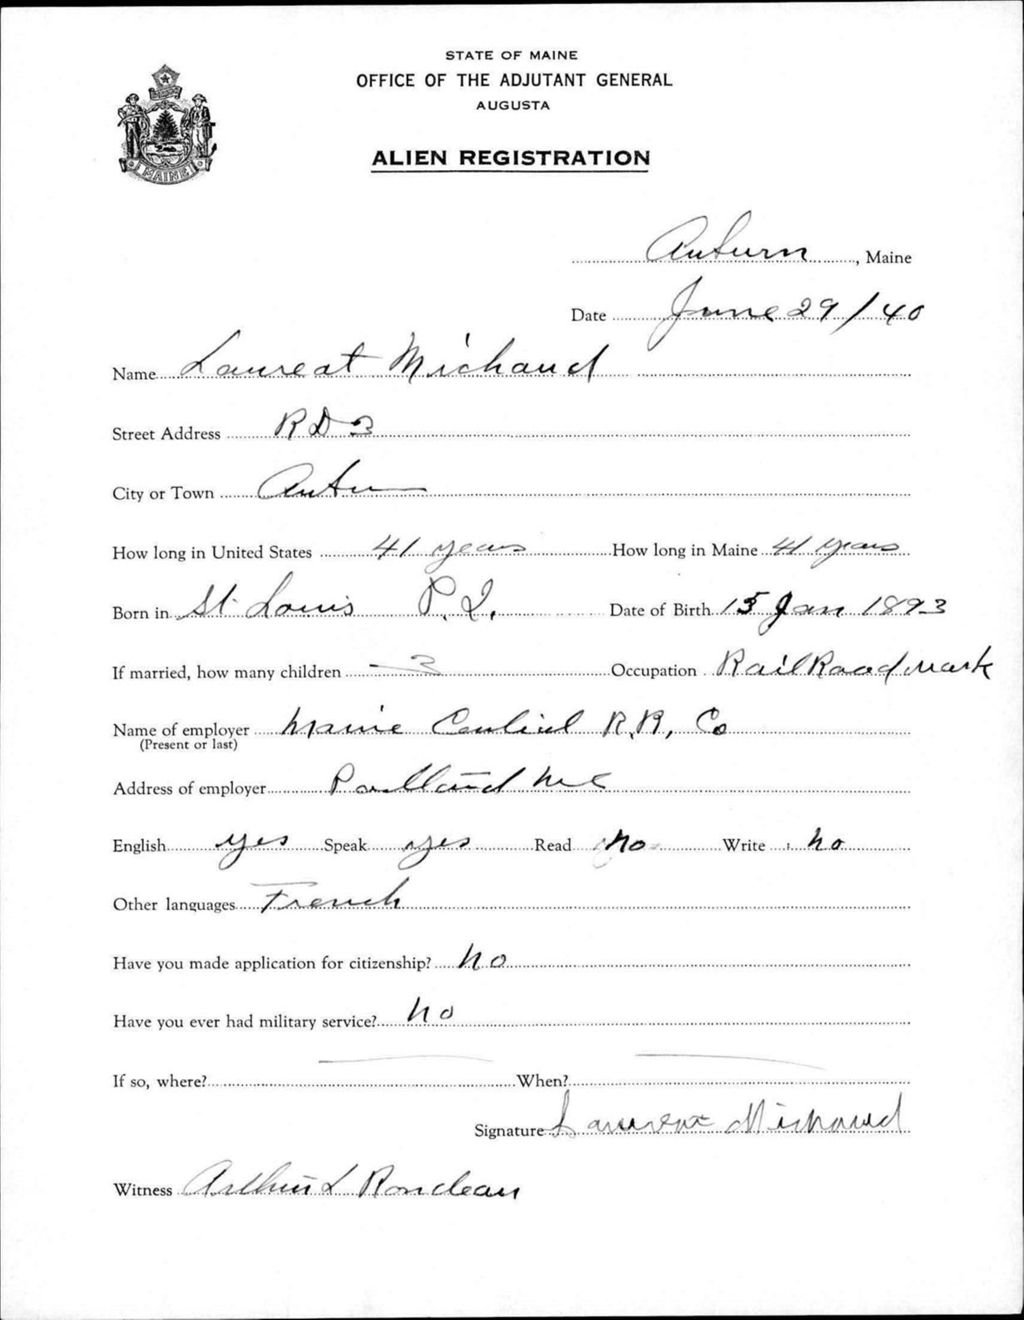 STATE OF MAINE
OFFICE OF THE ADJUTANT GENERAL
AUGUSTA
MAINE
ALIEN REGISTRATION
Auburn, Maine
Date June 29/40
Name Laureat Michaud
Street Address RD 3
City or Town
How long in United States 41 years How long in Maine 41 years
Born in St. Louis P.Q. Date of Birth 15 Jan 1893
If married, how many children 3 Occupation RailRoad work
Name of employer Maine Central R.R. Co
(Present or last)
Address of employer Portland Me
English yes Speak yes Read no Write no
Other languages French
Have you made application for citizenship? No
Have you ever had military service? No
If so, where? When?
Signature Laureat Michaud
Witness Arthur L Rondeau